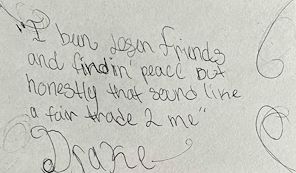 "I bun losen friends
and findin' peace but
honestly that sound like
a fair trade 2 me"
Drake